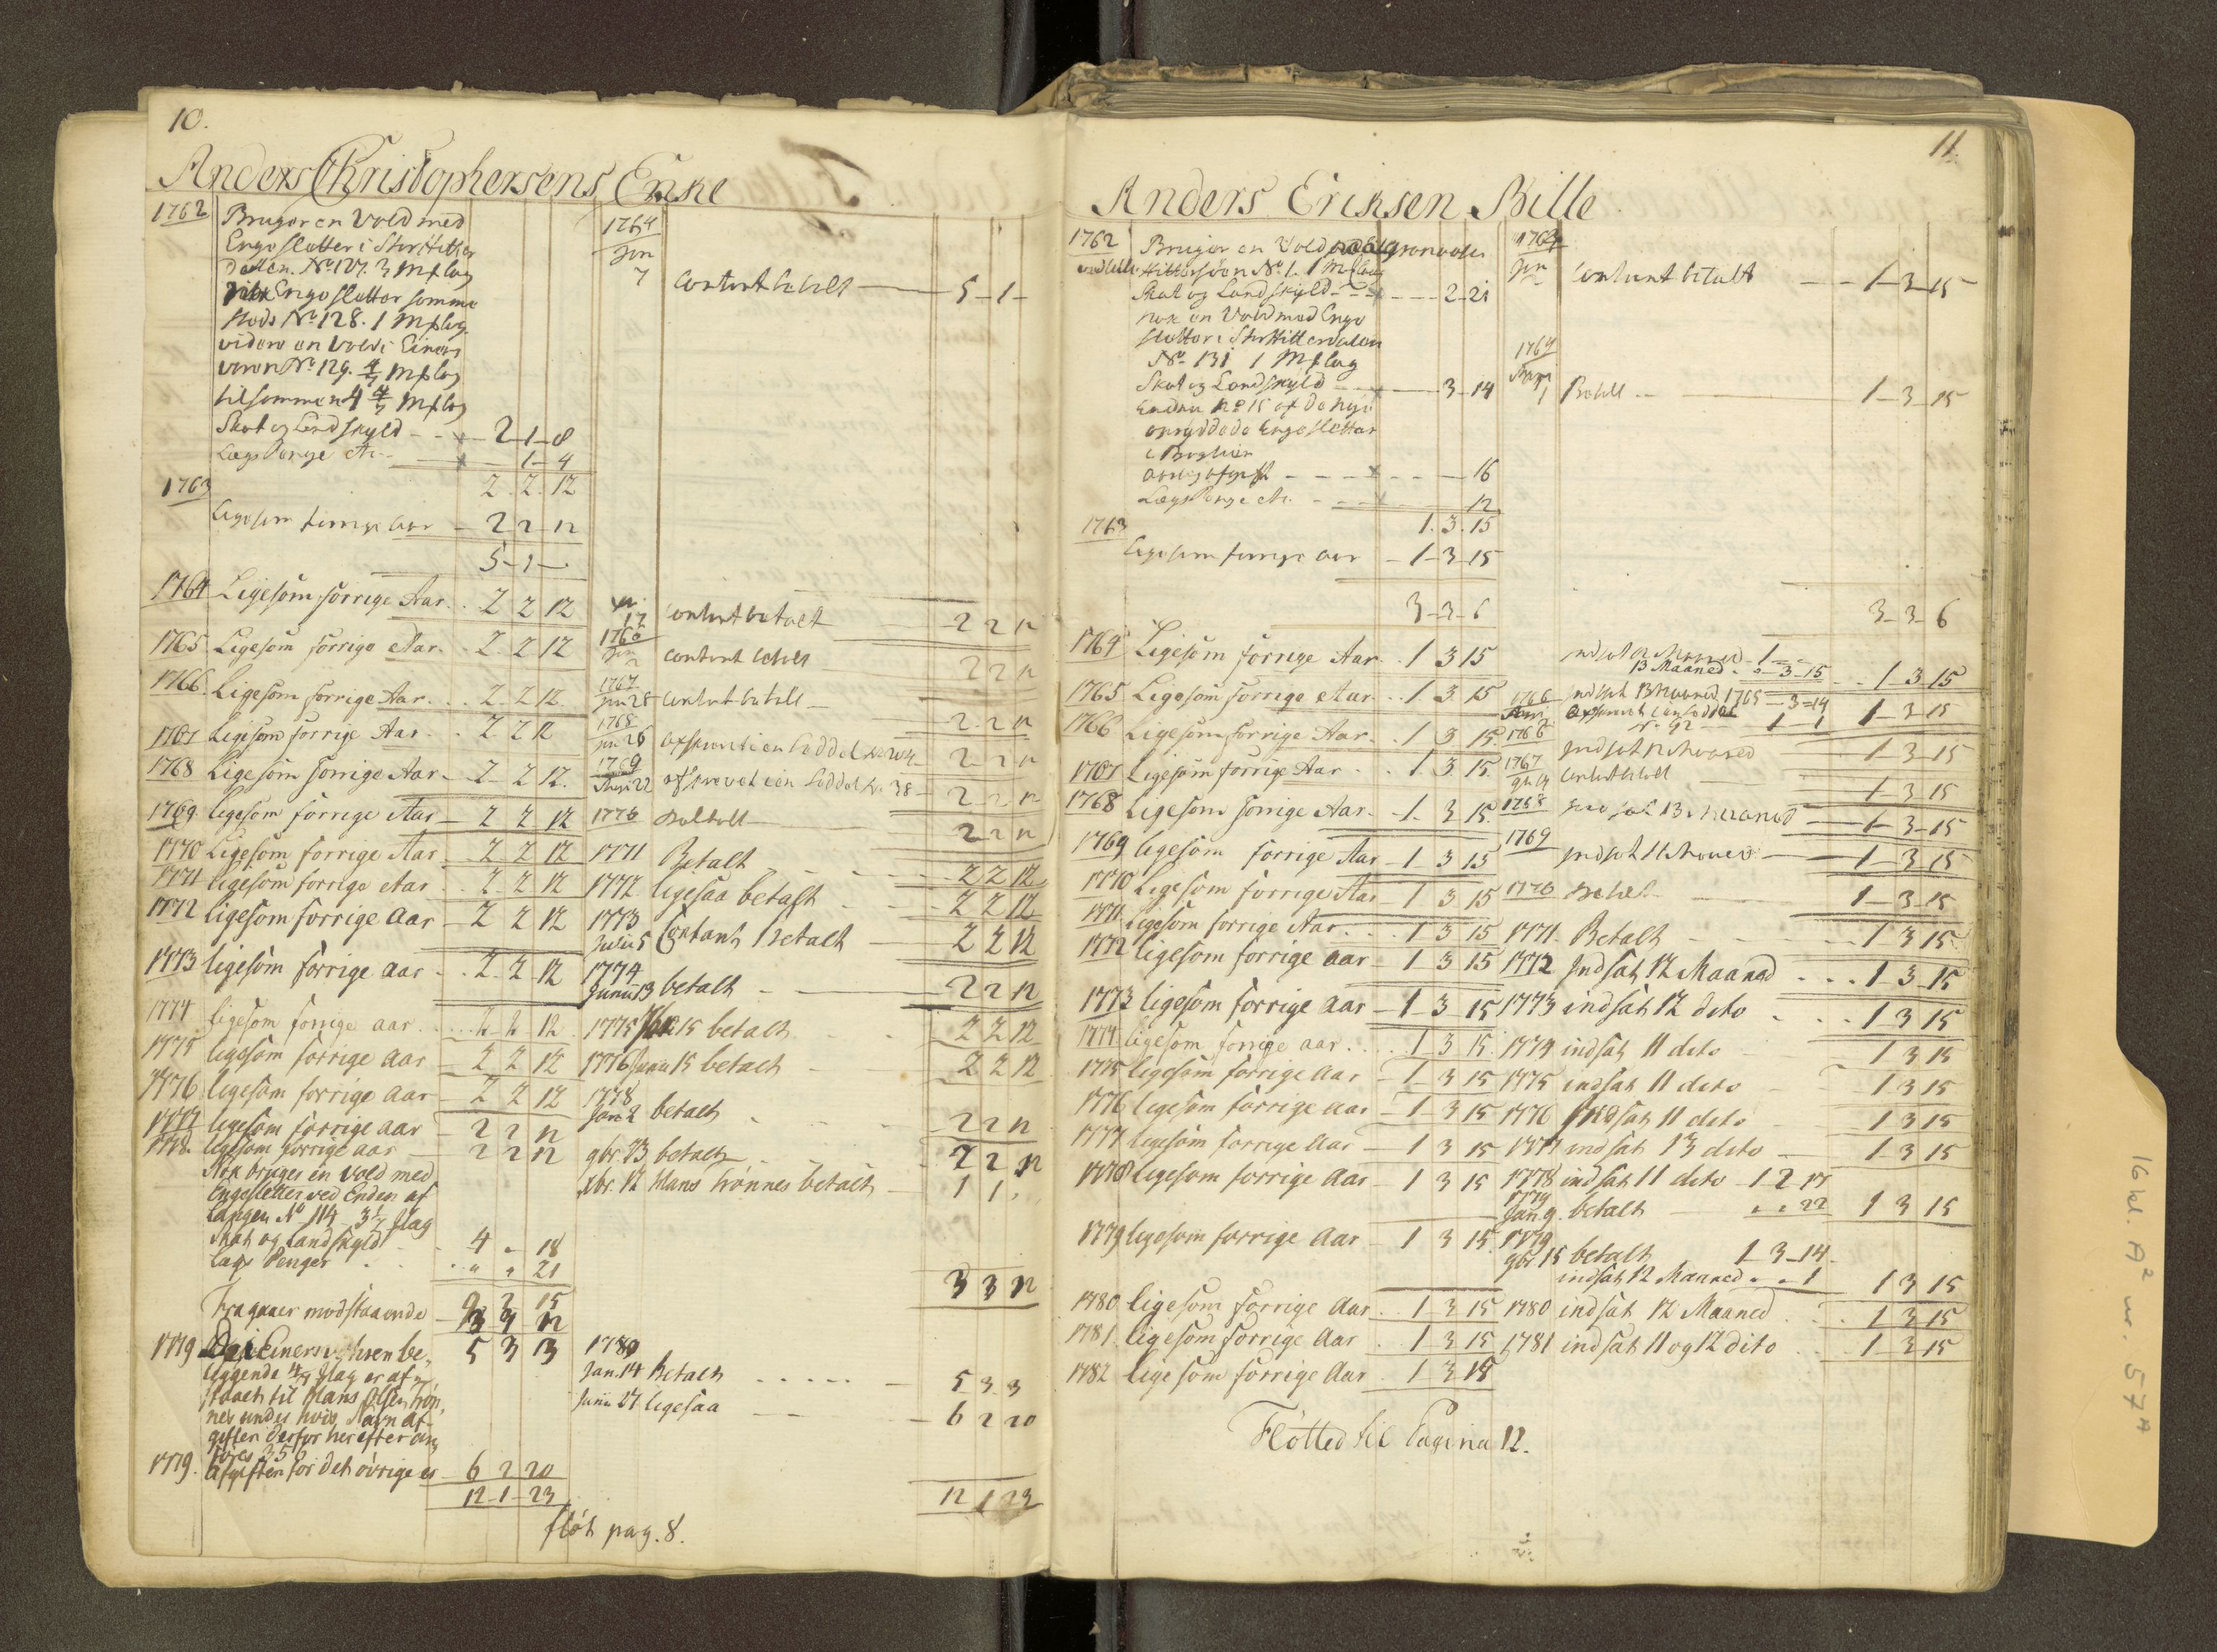 10.
Anders Christophersens Enke
1762 Bruger en Vold med
Enge Sletter i Stor Hitter
dallen. No 127. 3 Mflag
Enge Sletter somme
steds No 128. 1 Mflag.
videre en Vold i Einers
No 129. 4/7 Mflag
tilsammen 4 4/7 Mflag
Skat og Landskyld - - 2-1-8
Lægs Penge etc. - 1-4
2. 2. 12
1763
Ligesom forrige Aar - 2 2 12
5-1-
1764 Ligesom forrige Aar. . 2 2 12
1765. Ligesom forrige Aar. . 2 2 12
1766. Ligesom forrige Aar. . 2 2 12
1767 Ligesom forrige Aar. . 2 2 12
1768 Ligesom forrige Aar - 2 2 12.
1769. ligesom forrige Aar - 2 2 12
1770 Ligesom forrige Aar - 2 2 12
1771 ligesom forrige Aar . 2 2 12
1772 ligesom forrige Aar - 2 2 12
1773 ligesom forrige aar . . 2 2 12
1774 ligesom forrige aar . . 2 2 12
1775 ligesom forrige Aar - 2 2 12
1776 ligesom forrige Aar - 2 2 12
1777 ligesom forrige aar - 2 2 12
1778. ligesom forrige aar - 2 2 12
Nok bruges en Vold med
Engesletter ved Enden af
Langen No 114 3½ flag
Skat og Landskyld . . 4 " 18
Lægs Penger . . " " 21
Fragaaer modstaaende - 3 3 12
1779 Einers be„
liggende 4/7 flag er af„
staaet til Hans Olsen Trøn„
nes under hvis Navn af„
giften derfor herefter an„
føres 256
1779. Afgiften for det øvrige er - 6 2 20
12-1-23
fløt pag. 8.
1764
Jan
7 Contant betalt - 5-1-
17 Contant betalt - 2 2 12
Jan
2 Contant betalt - 2 2 12
1767
Jan 28 Contant betalt - 2 2 12
1768
Jan 26 afskrevet en Seddel - 2 2 12
1769
22 afskrevet een Seddel No. 38 - 2 2 12
1770 betalt - 2 2 12
1771 Betalt - 2 2 12
1772 ligesaa betalt - 2 2 12
1773
Julii 5 Contant Betalt - 2 2 12
1774
Junii 13 betalt - 2 2 12
1775 15 betalt - 2 2 12
1776 Junii 15 betalt - 2 2 12
1778
Jan 2 betalt - 2 2 12
9br. 23 betalt - 2 2 12
Xbr. 12 Hans Trønnes betalt - 1 1 .
3 3 12
1780
Jan. 14 Betalt . . . . . - 5 3 3
Junii 27 ligesaa - 6 2 20
12 1 23
11.
Anders Eriksen Bille
1762 Bruger en Vold
Hittersöen No 1. 1 Mflag
Skat og Landskyld - - 2-21
nok en Vold med Enge
sletter i Stor Hitterdalen
No 131 1 Mflag
Skat og Landskyld - 3-14
Endnu No 15 af de nye
opryddede Enge Sletter
- 16
Lægs Penge etc. - 12
1. 3. 15
1763
Ligesom forrige Aar - 1-3-15
3-3-6
1764 Ligesom forrige Aar . 1 3 15
1765 Ligesom forrige Aar. . 1 3 15
1766 Ligesom forrige Aar. . 1 3 15.
1767 Ligesom forrige Aar . . 1 3 15
1768 Ligesom forrige Aar. - 1 3 15.
1769 ligesom forrige Aar - 1 3 15
1770 Ligesom forrige Aar - 1 3 15
1771 ligesom forrige Aar . . 1 3 15
1772 ligesom forrige aar - 1 3 15
1773 ligesom forrige aar - 1 3 15
1774 ligesom forrige aar . . 1 3 15.
1775 ligesom forrige Aar - 1 3 15
1776 ligesom forrige Aar - 1 3 15
1777 ligesom forrige Aar - 1 3 15
1778 ligesom forrige Aar - 1 3 15
1779 ligesom forrige Aar - 1 3 15.
1780 ligesom forrige Aar . 1 3 15
1781. ligesom forrige Aar . 1 3 15
1782 ligesom forrige Aar . 1 3 15
Fløtted til Pagina 12.
1764
Jan Contant betalt - - 1-3-15
1764
1 Betalt - 1-3-15
3-3-6
indsat 12 Maaned - 1 -
13 Maaned - " 3-15 . . 1 3 15
1766 indsat 13 Maaned 1765 - 3-14
afskrevet een Seddel
No. 92 - 1-1 1 3 15
1766 Indsat 12 Maaned - 1 3 15
1767 Contant betalt - 1 3 15
1768 Indsat 13 Maaned - 1 3 15
1769 Indsat 11 Maaned - 1-3-15
1770 betalt - 1-3-15
1771. Betalt - 1 3 15.
1772 Indsat 12 Maaned . . . 1-3-15
1773 indsat 12 dito . . . 1 3 15
1774 indsat 11 dito - 1 3 15
1775 indsat 11 dito - 1 3 15
1776 indsat 11 dito - 1 3 15
1777 indsat 13 dito - 1 3 15
1778 indsat 11 dito 1 2 17
1779
Jan 9. betalt - " " 22 1 3 15
1779
9br 15 betalt 1 3-14.
indsat 12 Maaned " " 1 1 3 15
1780 indsat 12 Maaned . . 1 3 15
1781 indsat 11 og 12 dito . . 1 3 15
16 kl. A² nr. 57ᴬ